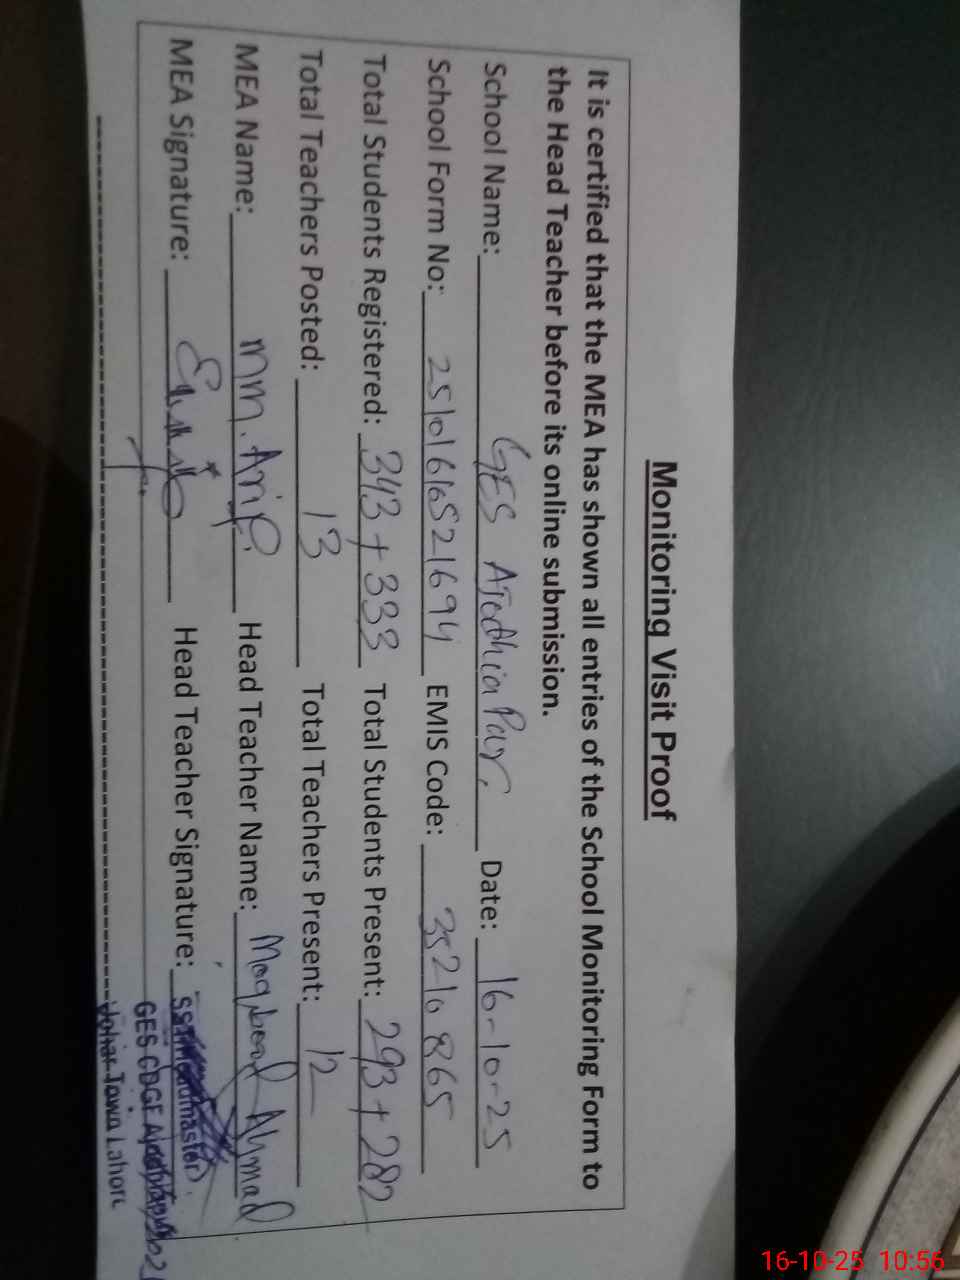 Monitoring Visit Proof
It is certified that the MEA has shown all entries of the School Monitoring Form to
the Head Teacher before its online submission.
School Name: GES Ajodhia Pur. Date: 16-10-25
School Form No: 25101616521694 EMIS Code: 35210865
Total Students Registered: 343 + 333 Total Students Present: 293 + 282
Total Teachers Posted: 13 Total Teachers Present: 12
MEA Name: MM. Arif. Head Teacher Name: Maqbool Ahmad
MEA Signature: Head Teacher Signature:
SST(Headmaster)
GES GDGF
Johar Town Lahore
16-10-25 10:56